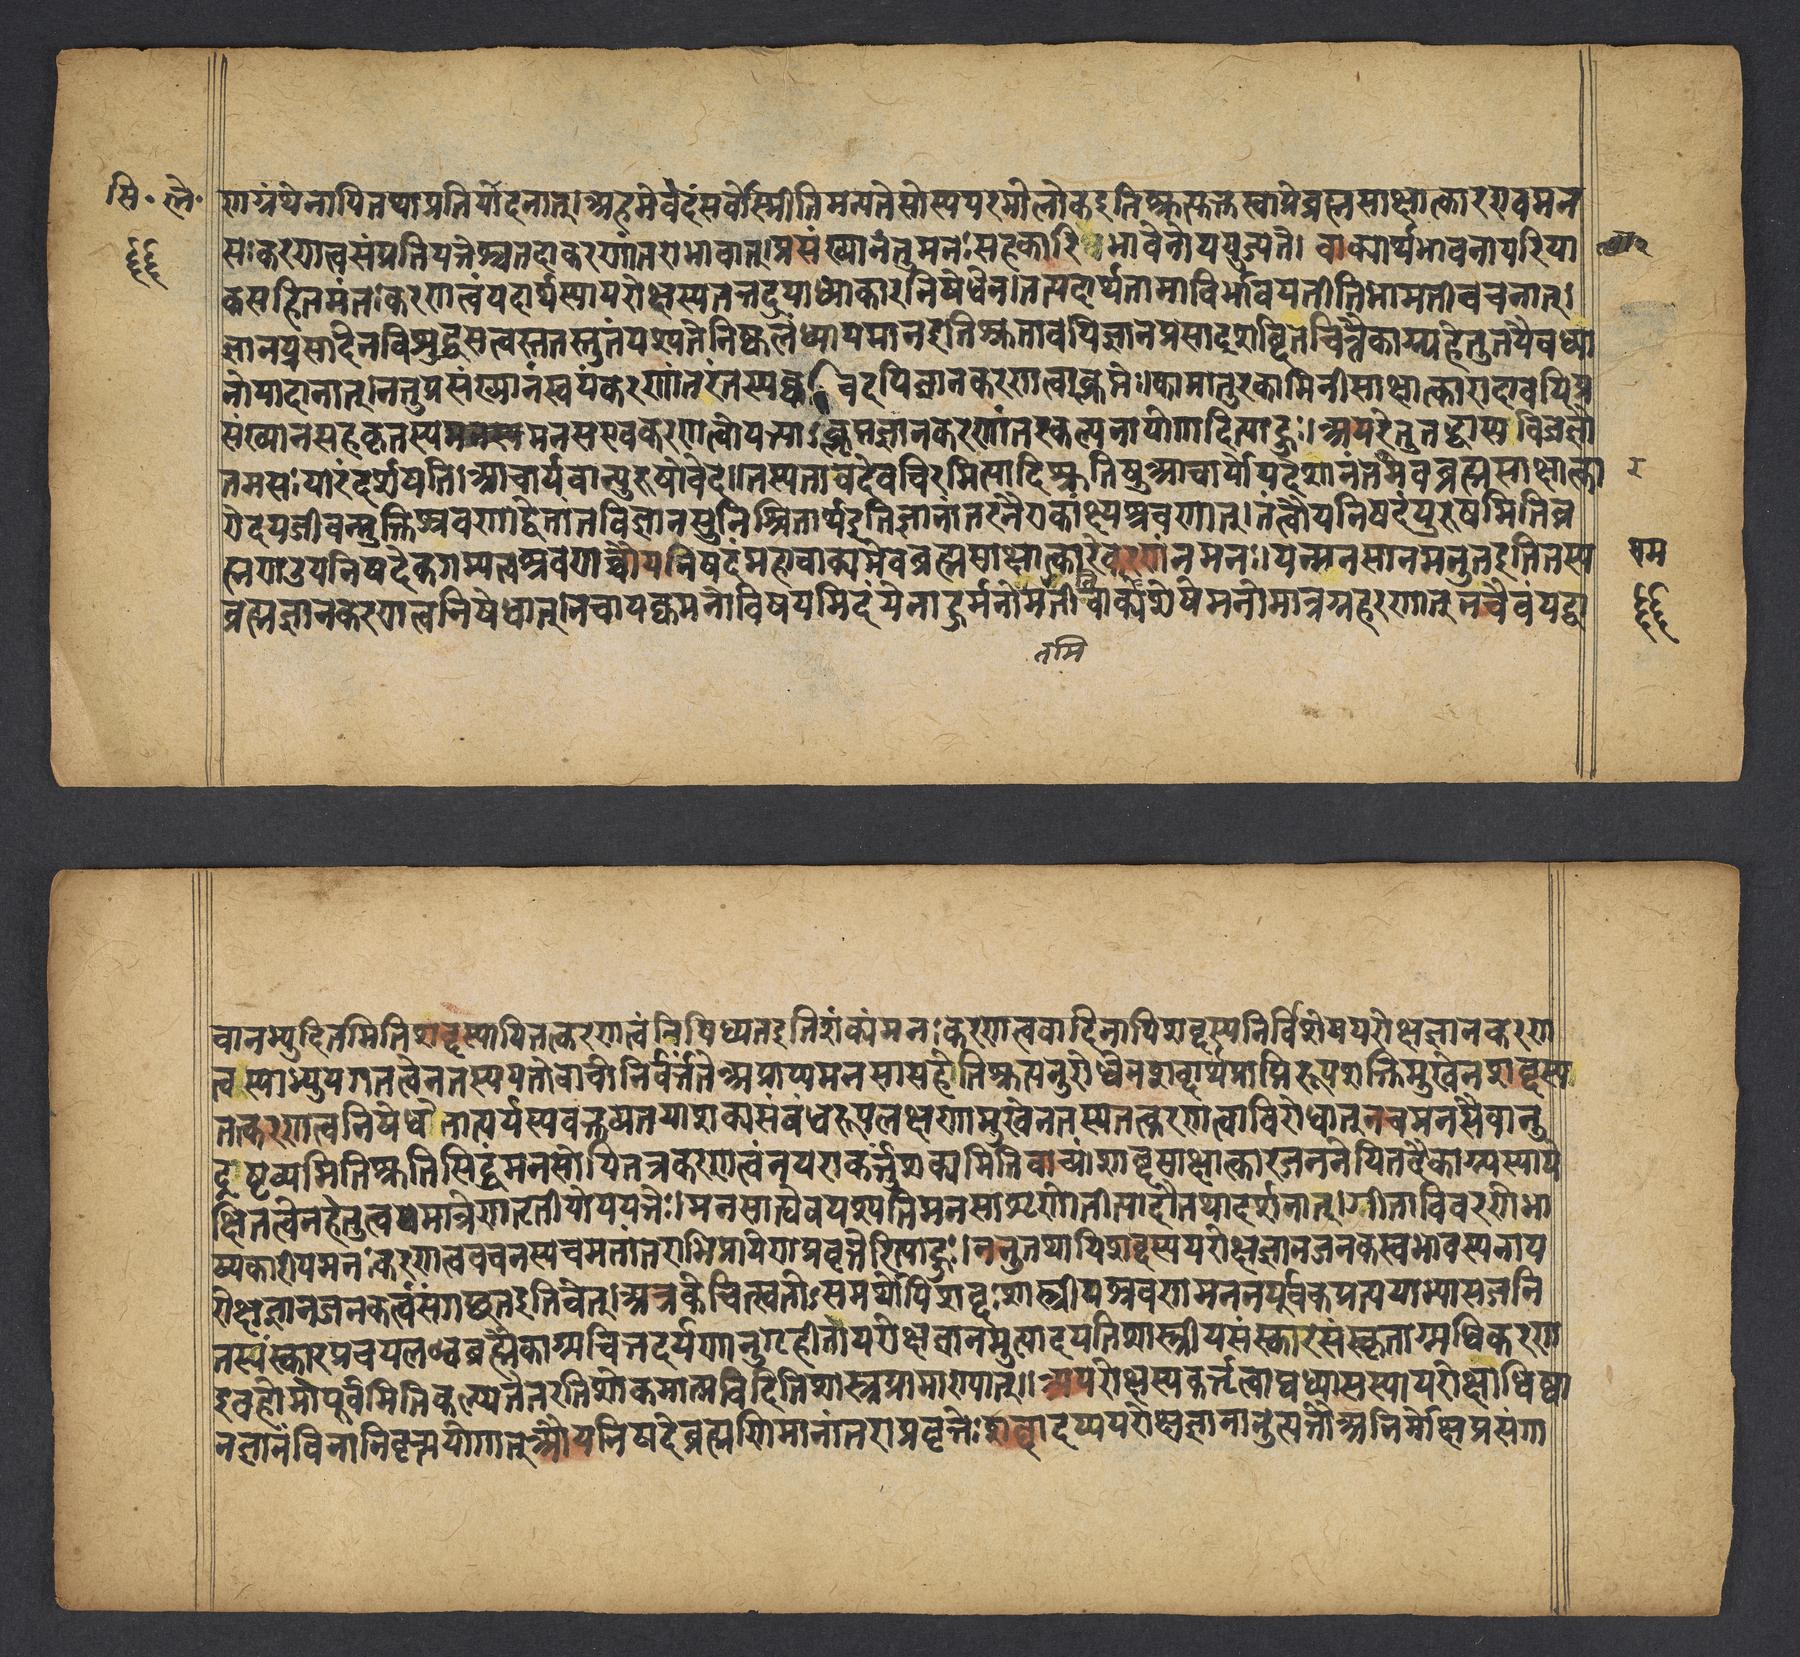 सि॰ ले॰
६६
णग्रंथेनापितथाप्रतिपादनात्।अहमेवेदंसर्वोस्मीतिमन्यतेसोस्यपरमोलोकइतिश्रुत्युक्तस्वाप्नेब्रह्मसाक्षात्कारएवमन
सःकरणत्वसंप्रतिपत्तेश्चतदाकरणांतराभावात्।प्रसंख्यानंतुमनःसहकारिभावेनोपयुज्यते। वाक्यार्थभावनापरिपा
कसहितमंतःकरणंत्वंपदार्थस्यापरोक्षस्यतत्तदुपाध्याकारनिषेधेन।तत्पदार्थतामाविर्भावयतीतिभामतीवचनात्।
ज्ञानप्रसादेनविशुद्धसत्वस्ततस्तुतंपश्यतेनिष्कलंध्यायमानइतिश्रुतावपिज्ञानप्रसादशब्दितचित्तैकाग्र्यहेतुतयैवध्या
नोपादानात्।नतुप्रसंख्यानंस्वयंकरणांतरंतस्यक्वचिदपिज्ञानकरणत्वाक्लृप्तेः।कामातुरकामिनीसाक्षात्कारादावपिप्र
संख्यानसहकृतस्यमनसएवकरणत्वोपपत्त्याऽक्लृप्तज्ञानकरणांतरकल्पनायोगादित्याहुः।अपरेतुतद्धास्यविजज्ञौ
तमसःपारंदर्शयति।आचार्यवान्पुरुषोवेद।।तस्यतावदेवचिरमित्यादिश्रुतिषुआचार्योपदेशानंतरमेवब्रह्मसाक्षात्का
र
रोदयज्जीवन्मुक्तिश्रवणाद्वेदांतविज्ञानसुनिश्चितार्थइतिज्ञानांतरनैराकांक्ष्यश्रवणात्।तंत्वौपनिषदंपुरुषमितिब्र
ह्मणउपनिषदेकगम्यत्वश्रवणाच्चौपनिषदंमहावाक्यमेवब्रह्मसाक्षात्कारेकरणंनमनः।यन्मनसानमनुतइतितस्य
ब्रह्मज्ञानकरणत्वनिषेधात्।नचापक्वमनोविषयमिदंयेनाहुर्मनोमतमितिवाक्यशेषेमनोमात्रग्रहणात्नचैवंयद्वा
तमि
६६
चानभ्युदितमितिशब्दस्यापितत्करणत्वंनिषिध्यतइतिशंक्यंमनःकरणत्ववादिनापिशब्दस्यनिर्विशेषपरोक्षज्ञानकरण
त्वस्याभ्युपगतत्वेनतस्ययतोवाचोनिवर्तंतेअप्राप्यमनसासहेतिश्रुत्यनुरोधेनशब्दार्थप्राप्तिरूपशक्तिमुखेनशब्दस्य
तत्करणत्वनिषेधेतात्पर्यस्यवक्तव्यतयाशक्यसंबंधरूपलक्षणामुखेनतस्यतत्करणत्वाविरोधात्नचमनसैवानु
द्रष्टव्यमितिश्रुतिसिद्धंमनसोपितत्रकरणत्वंनपराकर्त्तुंशक्यमितिवाच्यंशाब्दसाक्षात्कारजननेपितदैकाग्र्यस्यापे
क्षितत्वेनहेतुत्वमात्रेणतृतीयोपपत्तेः।मनसाह्येवपश्यतिमनसाशृणोतीत्यादौतथादर्शनात्।गीताविवरणेभा
ष्यकारीयमनःकरणत्ववचनस्यचमतांतराभिप्रायेणप्रवृत्तेरित्याहुः।ननुतथापिशब्दस्यपरोक्षज्ञानजनकस्वभावस्यनाप
रोक्षज्ञानजनकत्वंसंगच्छतइतिचेत्।अत्रकेचित्स्वतोऽसमर्थोपिशब्दःशास्त्रीयश्रवणमननपूर्वकप्रत्ययाभ्यासजनि
तसंस्कारप्रचयलब्धब्रह्मैकाग्र्यचित्तदर्पणानुगृहीतोपरोक्षज्ञानमुत्पादयतिशास्त्रीयसंस्कारसंस्कृताग्न्यधिकरण
इवहोमोपूर्वमितिकल्प्यतेतरतिशोकमात्मविदितिशास्त्रप्रामाण्यात्।।अपरोक्षस्यकर्तृत्वाद्यध्यासस्यापरोक्षाधिष्ठा
नज्ञानंविनानिवृत्त्ययोगात्औपनिषदेब्रह्मणिमानांतराप्रवृत्तेःशब्दादप्यपरोक्षज्ञानानुत्पत्तौअनिर्मोक्षप्रसंगा